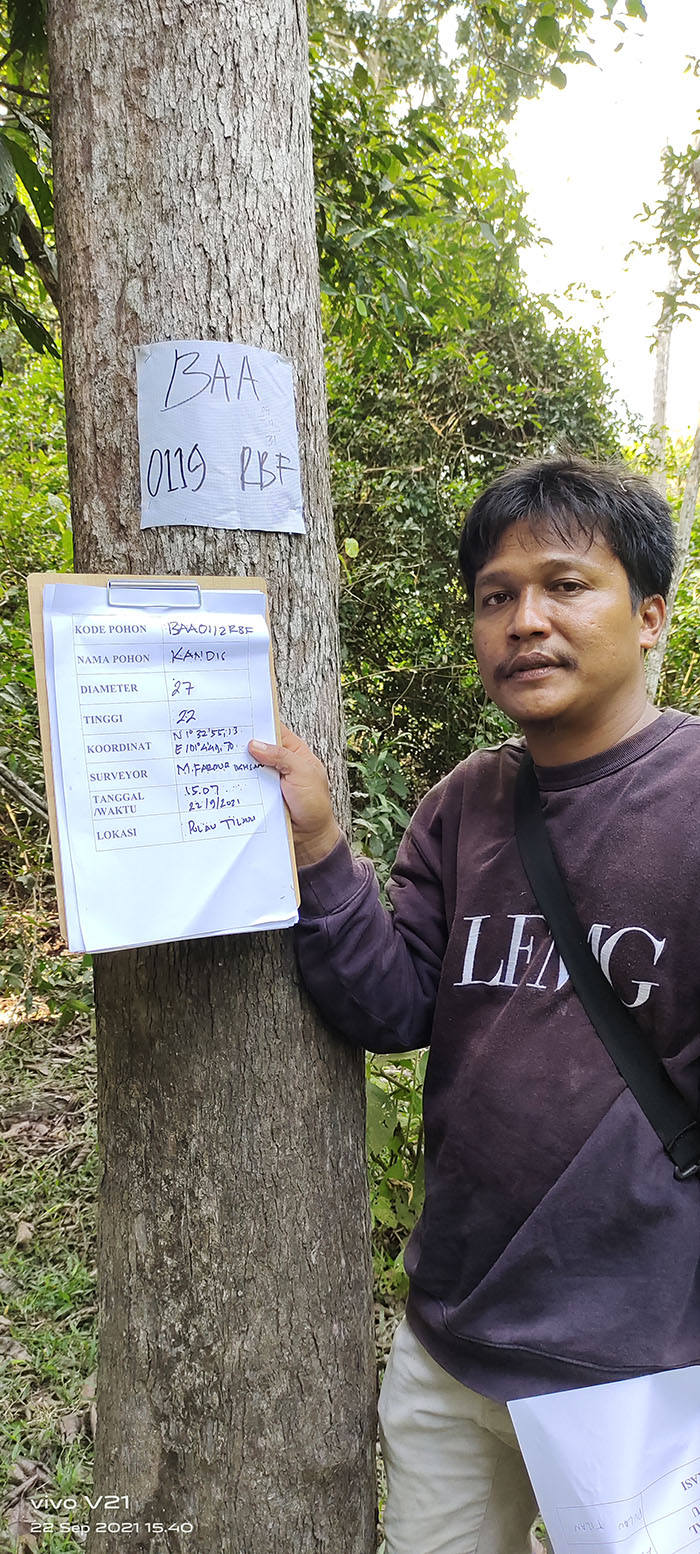 BAA
0119 RBF
KODE POHON BAA0112RBF
NAMA POHON KANDIS
DIAMETER 27
TINGGI 22
KOORDINAT N 1° 32'55,13
E 101°
SURVEYOR M.FAROUF
TANGGAL /WAKTU 15.07
22/9/2021
LOKASI PULAU TILAN
LFMG
vivo V21
22 Sep 2021 15.40